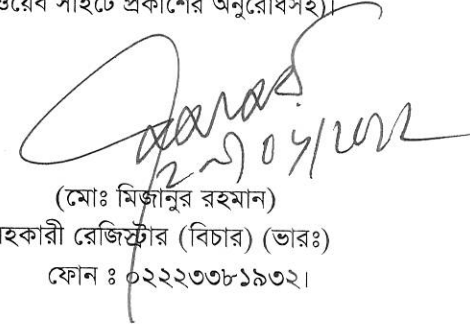 ওয়েব সাইটে প্রকাশের অনুরোধসহ)।
(মোঃ মিজানুর রহমান)
সহকারী রেজিস্ট্রার (বিচার) (ভারঃ)
ফোন ঃ ০২২২৩৩৮১৯৩২।